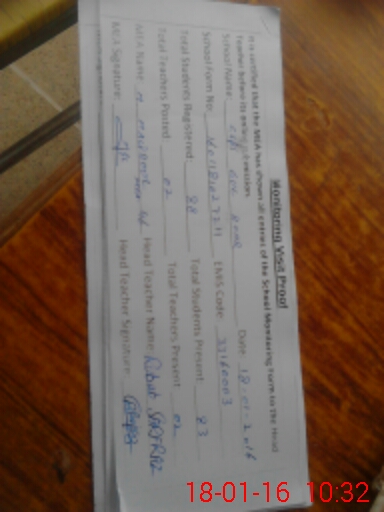 Monitoring Visit Proof
It is certified that the MEA has shown all entries of the School Monitoring Form to the Head
Teacher before its online submission
School Name: Date: 18-01-2016
School Form No: EMIS Code:
Total Students Registered: 88 Total Students Present: 83
Total Teachers Posted: 02 Total Teachers Present: 02
MEA Name: M Head Teacher Name: Rubab SARFRAZ
MEA Signature: Head Teacher Signature:
18-01-16 10:32